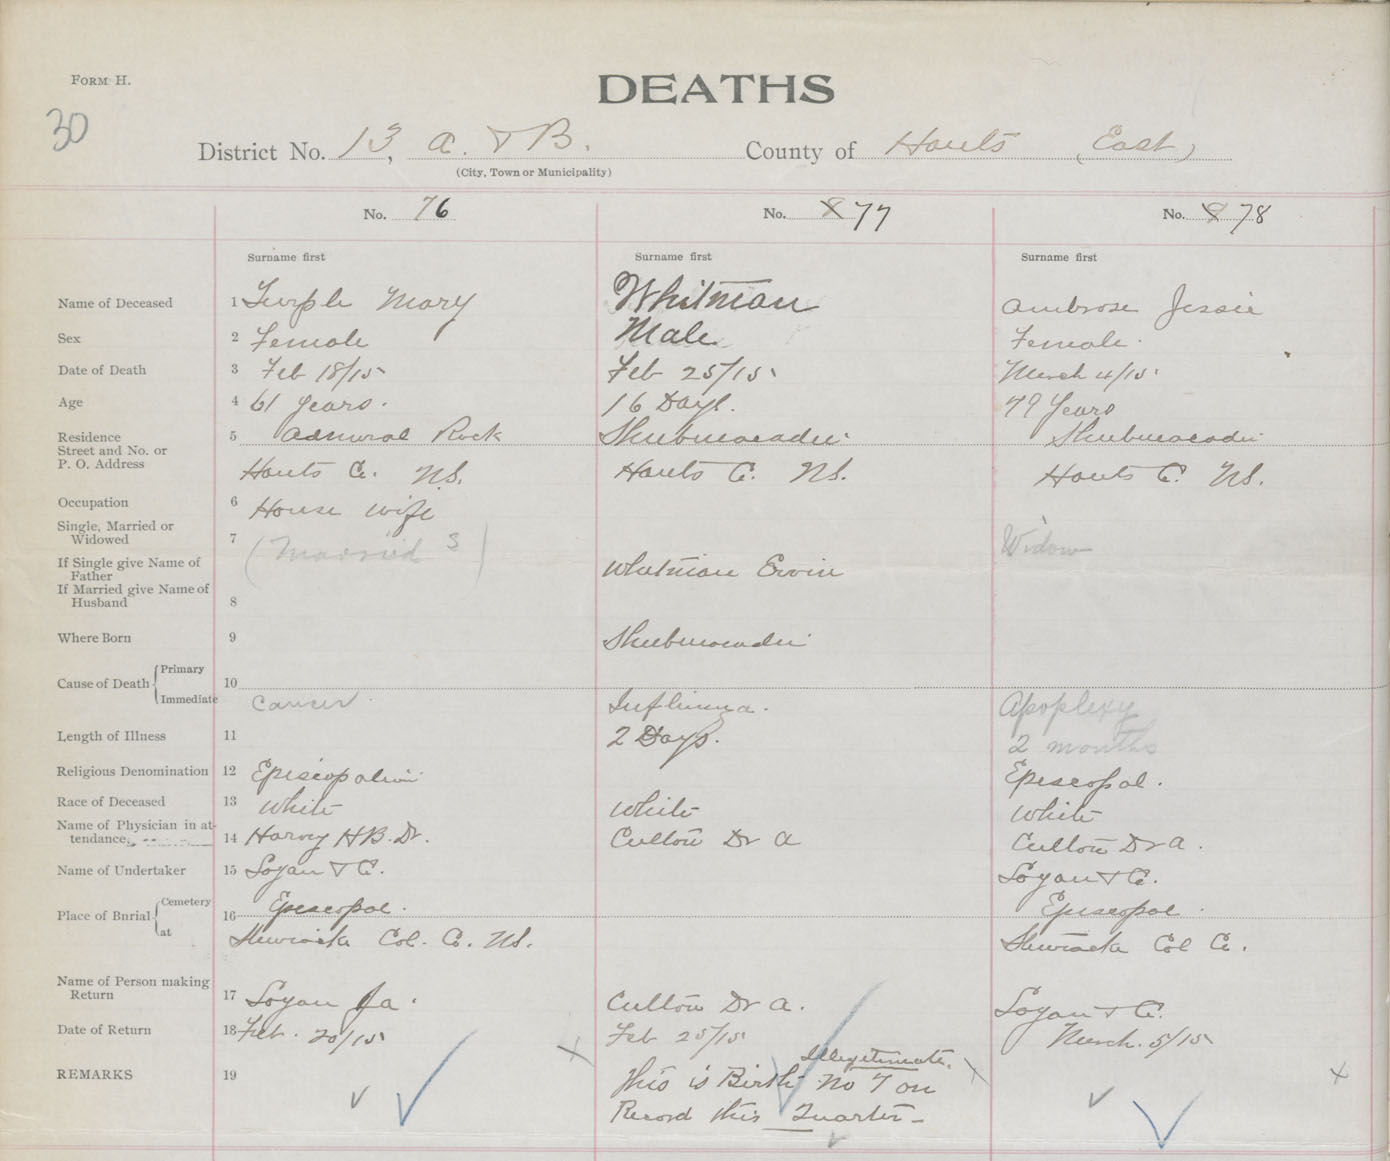 FORM H.
DEATHS
30
District No. 13, A. & B. County of Hants (East)
(City, Town or Municipality)
No. 76 No. 8 77 No. 8 78
Surname first Surname first Surname first
Name of Deceased 1 Turple Mary Whitman Ambrose Jessie
Sex 2 Female Male Female.
Date of Death 3 Feb 18/15 Feb 25/15 March 4/15
Age 4 61 years. 16 Days. 79 Years
Residence 5 Admiral Rock Shubenacadie Shubenacadie
Street and No. or
P. O. Address Hants C. N.S. Hants C. N.S. Hants C. N.S.
Occupation 6 House wife
Single, Married or
Widowed 7 (Married S) Widow
If Single give Name of
Father Whitman Ervin
If Married give Name of
Husband 8
Where Born 9 Shubenacadie
Cause of Death Primary 10
Immediate Cancer. Influenza. Apoplexy
Length of Illness 11 2 Days. 2 months
Religious Denomination 12 Episcopalian Episcopal.
Race of Deceased 13 White White White
Name of Physician in at-
tendance, 14 Harvey H B. Dr. Culton Dr A Culton Dr A.
Name of Undertaker 15 Logan & C. Logan & C.
Place of Burial Cemetery 16 Episcopal. Episcopal
at Stewiacke Col. C. N.S. Stewiacke Col C.
Name of Person making
Return 17 Logan Ja. Culton Dr A. Logan & C.
Date of Return 18 Feb. 20/15 Feb 25/15 March. 5/15
Illegitimate.
REMARKS 19 This is Birth No 7 on
Record this Quarter